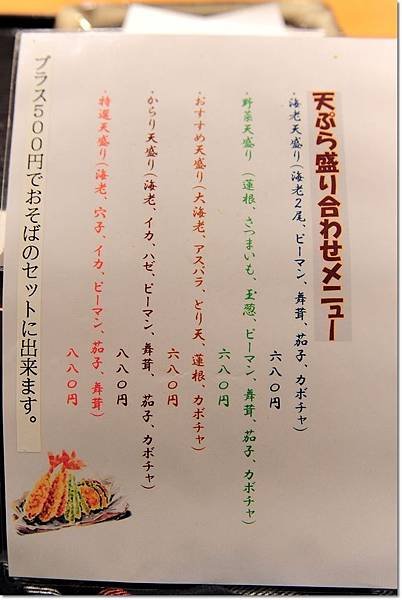 天ぷら盛り合わせメニュー
・海老天盛り(海老2尾、ピーマン、舞茸、茄子、カボチャ)
六八〇円
・野菜天盛り (蓮根、さつまいも、玉葱、ピーマン、舞茸、茄子、カボチャ)
六八〇円
・おすすめ天盛り(大海老、アスパラ、とり天、蓮根、カボチャ)
六八〇円
・からり天盛り(海老、イカ、ハゼ、ピーマン、舞茸、茄子、カボチャ)
八八〇円
・特選天盛り(海老、穴子、イカ、ピーマン、茄子、舞茸)
八八〇円
プラス500円でおそばのセットに出来ます。